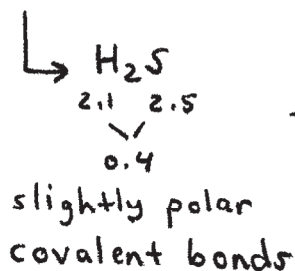 H₂S
2.1 2.5
0.4
slightly polar
covalent bonds